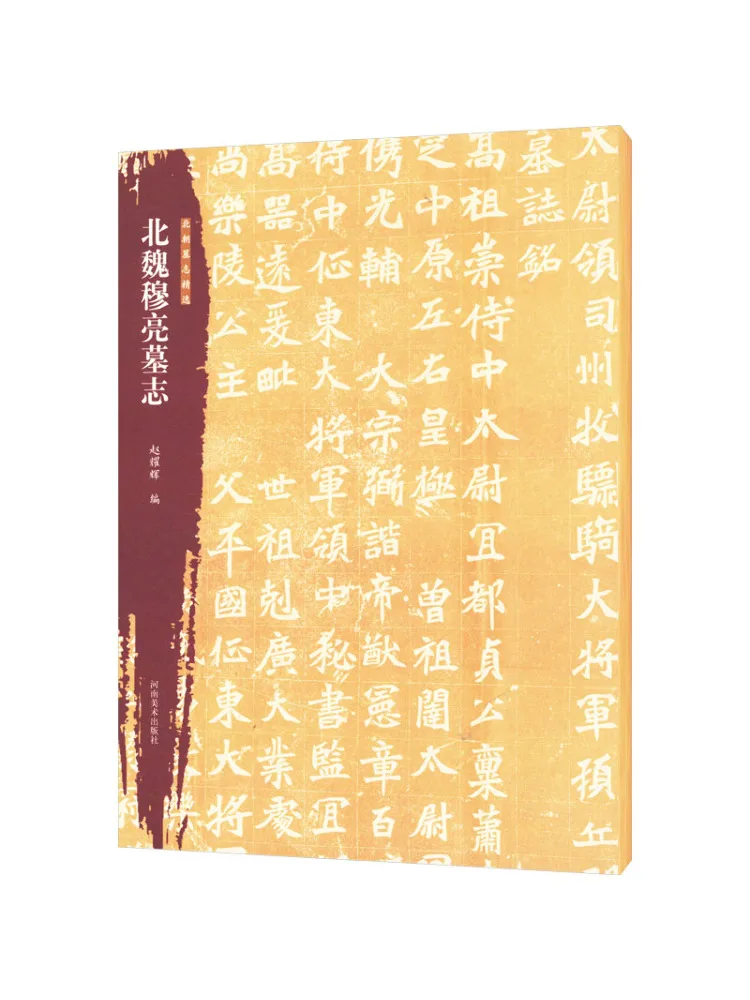 北朝墓志精选
北魏穆亮墓志
赵耀辉 编
河南美术出版社
太尉領司州牧驃騎大將軍頓丘
墓誌銘
高祖崇侍中太尉宜都貞公稟蕭
芝中原左右皇極 曾祖闥太尉
儁光輔 大宗弼諧帝猷憲章百
侍中征東大將軍領中秘書監宜
高器遠爰毗 世祖剋廣大業處
尚樂陵公主 父平國征東大將